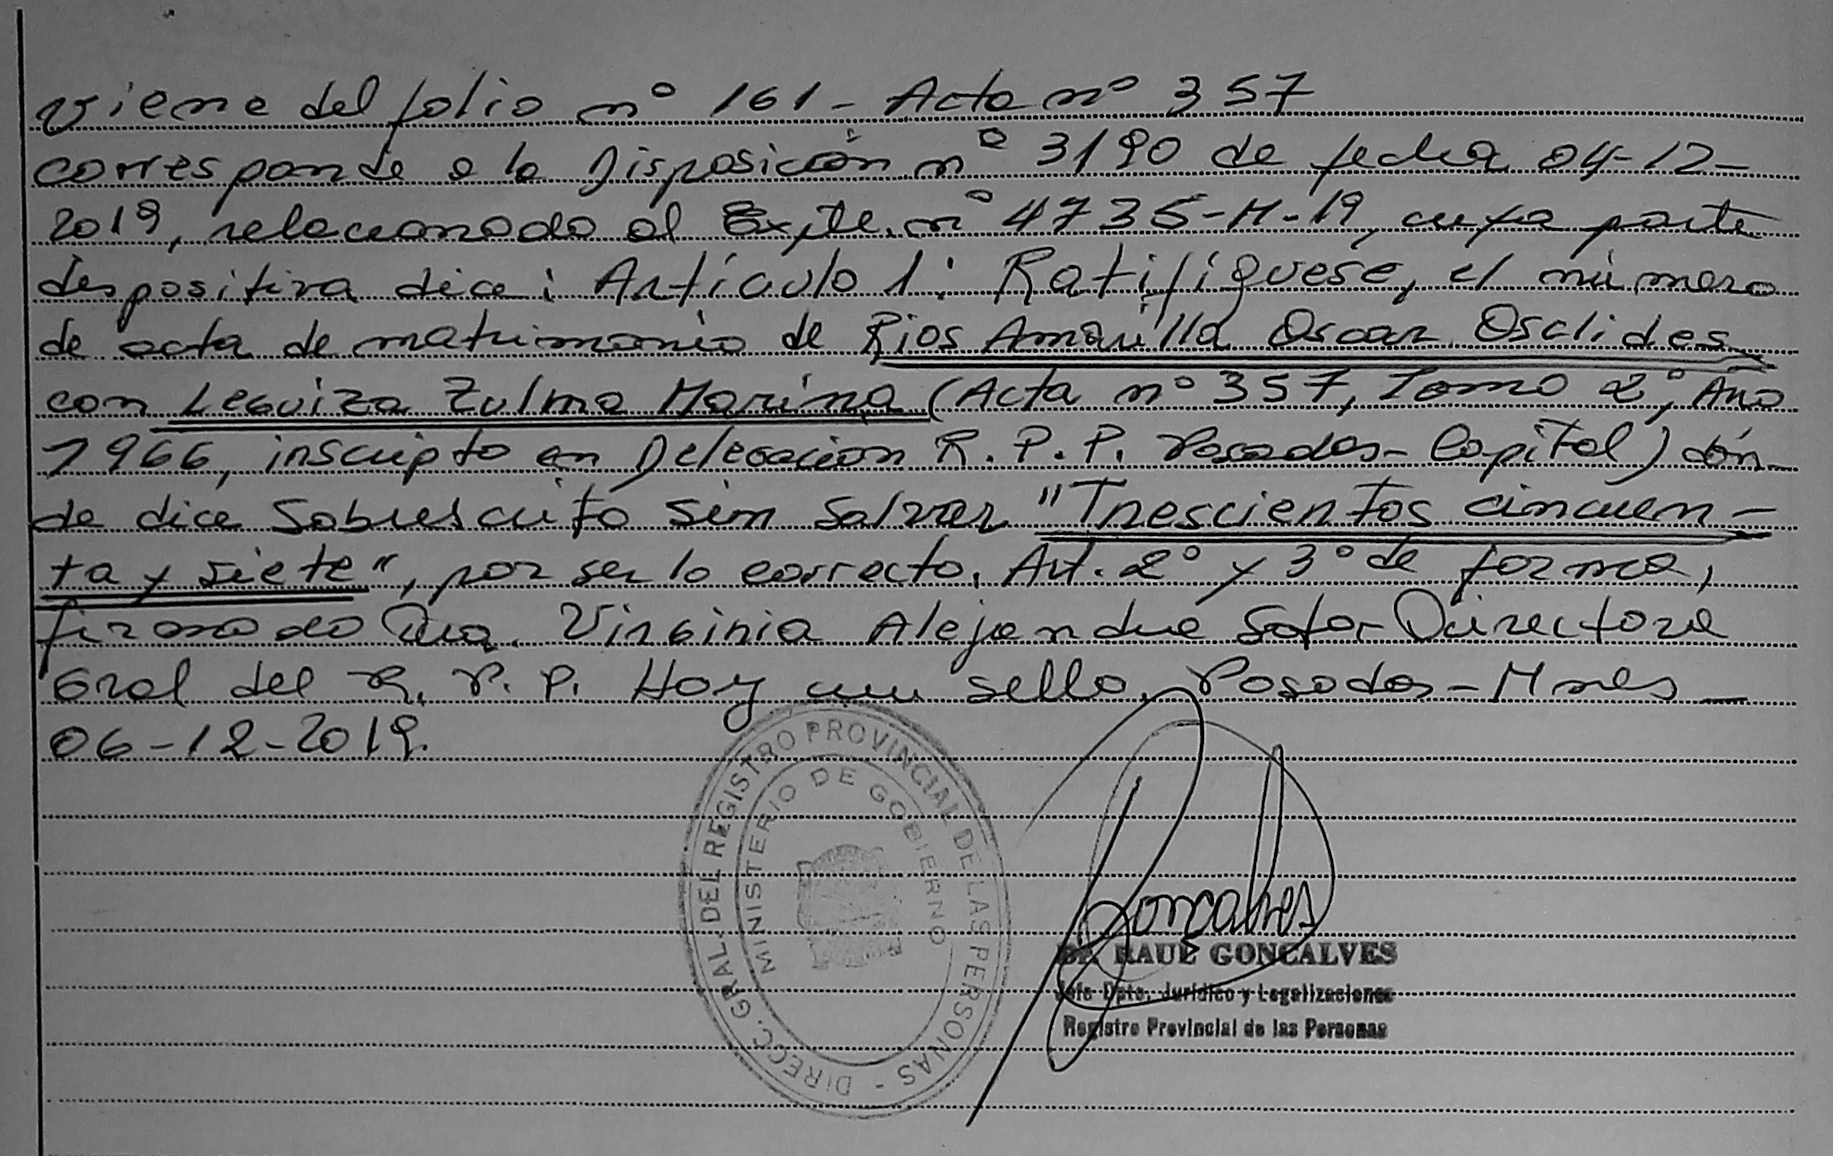 viene del folio nº 161 - Acta nº 357
corresponde a la Disposición nº 3190 de fecha 04-12-
2019, relacionado al Expte. nº 4735-M-19, cuya parte
dispositiva dice: Artículo 1: Ratifíquese, el número
de acta de matrimonio de Rios Amarilla Oscar Osclides
con Leguiza Zulma Marina (Acta nº 357, Tomo 2º, Año
1966, inscripto en Delegacion R. P. P. Posadas - Capital) dón-
de dice Sobrescrito sin Salvar "Trescientos cincuen-
ta y siete", por ser lo correcto. Art. 2º y 3º de forma,
firmado Dra. Virginia Alejandra Soto - Directora
Gral del R. P. P. Hay un sello. Posadas - Mnes -
06-12-2019.
DIRECC. GRAL. DEL REGISTRO PROVINCIAL DE LAS PERSONAS -
MINISTERIO DE GOBIERNO
Gonçalves
Dr. RAUL GONCALVES
Jefe Dpto. Jurídico y Legalizaciones
Registro Provincial de las Personas